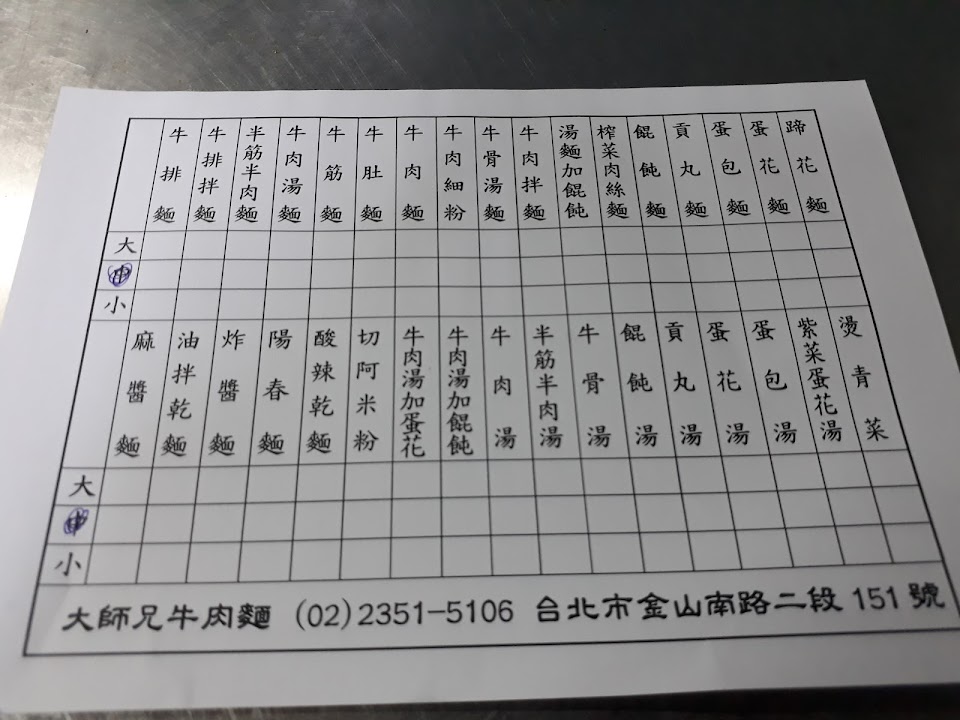 牛排麵
牛排拌麵
半筋半肉麵
牛肉湯麵
牛筋麵
牛肚麵
牛肉麵
牛肉細粉
牛骨湯麵
牛肉拌麵
湯麵加餛飩
榨菜肉絲麵
餛飩麵
貢丸麵
蛋包麵
蛋花麵
蹄花麵
大
中
小
麻醬麵
油拌乾麵
炸醬麵
陽春麵
酸辣乾麵
切阿米粉
牛肉湯加蛋花
牛肉湯加餛飩
牛肉湯
半筋半肉湯
牛骨湯
餛飩湯
貢丸湯
蛋花湯
蛋包湯
紫菜蛋花湯
燙青菜
大
中
小
大師兄牛肉麵 (02)2351-5106 台北市金山南路二段151號